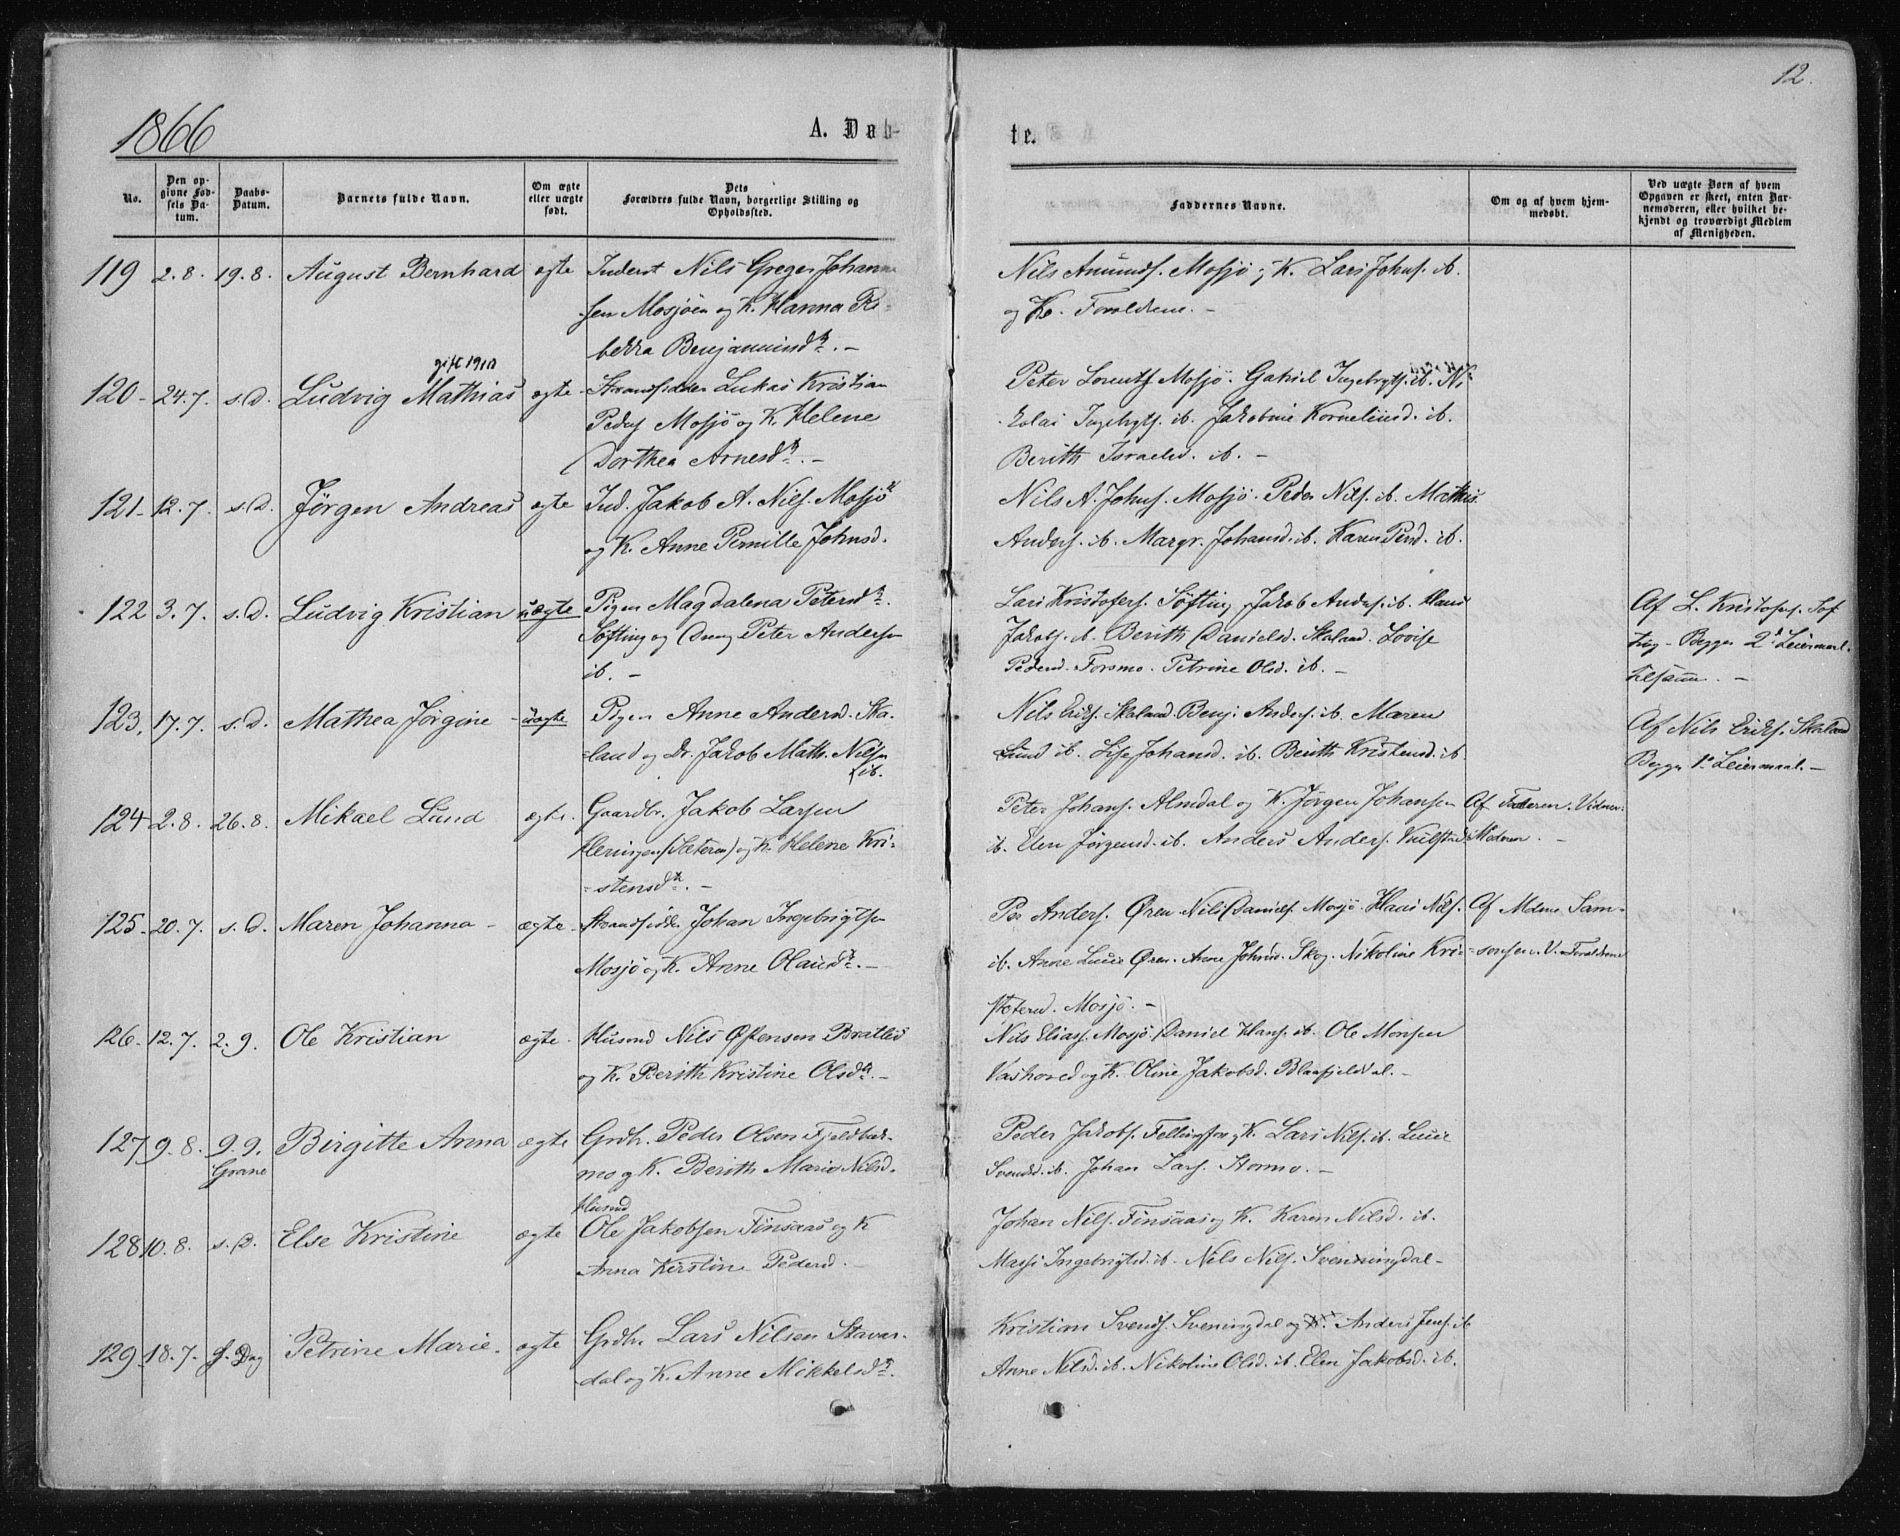 12.
1866
A. Døb-
te.
No.
Den op-
givne Fød-
sels Da-
tum.
Daabs-
Datum.
Barnets fulde Navn.
Om ægte
eller uægte
født.
Dets
Forældres fulde Navn, borgerlige Stilling og
Opholdssted.
Faddernes Navne.
Om og af hvem hjem-
medøbt.
Ved uægte Børn af hvem
Opgaven er skeet, enten Bar-
nemoderen, eller hvilket be-
kjendt og troværdigt Medlem
af Menigheden.
119 2.8. 19.8. August Bernhard ægte Inderst Nils Greger Johann-
sen Mosjøen og K. Hanna Re-
bekka Benjaminsdtr. -
Nils Amunds. Mosjø og K. Lars Johns. ib.
og K. Forældrene. -
gift 1910
120- 24.7. s.D. Ludvig Mathias ægte Strandsidder Lukas Kristian
Peders Mosjø og K. Helene
Dorthea Arnesdtr. -
Peter Lorents. Mosjø. Gabriel Ingebrigts. ib. Ni-
kolai Ingebrigts. ib. Jakobine Korneliusd. ib.
Berith Israelsd. ib. -
121- 12.7. s.D. Jørgen Andreas ægte Ind. Jakob A. Nils. Mosjø
og K. Anne Pernille Johnsd.
Nils A. Johns. Mosjø. Peder Nils. ib. Mathis
Anders. ib. Margr. Johansd. ib. Karen Persd. ib.
122 3.7. s.D. Ludvig Kristian uægte Pigen Magdalena Petersdtr.
Søfting og Dreng Peter Andersen
ib. -
Lars Kristofers. Søfting Jakob Anders. ib. Hans
Jakobs. ib. Berith Danielsd. Skaland. Lovise
Pedersd. Forsmo. Petrine Olsd. ib. -
Af L. Kristofers. Søf-
ting - Begges 2d Leiermaal.
tilsamm. -
123. 17.7. s.D. Mathea Jørgine - uægte Pigen Anne Andersd. Ska-
land og Dr. Jakob Math. Nilsen
ib.
Nils Eriks. Skaland. Benj. Anders. ib. Maren
Lund ib. Lise Johansd. ib. Berith Kristensd. ib
Af Nils Eriks. Skaland
Begges 1e Leiermaal. -
124 2.8. 26.8. Mikael Lund ægte. Gaardbr. Jakob Larsen
Heringen (Sæteren) og K. Helene Kri-
stensdtr. -
Peter Johans. Almdal og K. Jørgen Johansen
ib. Elen Jørgensd. ib. Anders Anders. Kulstad
Af Faderen. Vidner.
Moderen. -
125- 20.7. s.D. Maren Johanna - ægte. Strandsidd. Johan Ingebrigtsen
Mosjø og K. Anne Olausdtr. -
Per Anders. Øren. Nils Daniels. Mosjø. Hans Nils.
ib. Anne Lucie Øren. Anne Johnsd. Skog. Nikoline Kri-
stensd. Mosjø. -
Af Mdme Sam-
sonsen. V. Forældrene
126- 12.7. 2.9. Ole Kristian ægte. Husmd Nils Østensen Bratlid
og K. Berith Kristine Olsdtr. -
Nils Elias. Mosjø. Daniel Hans. ib. Ole Monsen
Vashoved og K. Oline Jakobsd. Blaafjeldal. -
127 9.8. 9.9. Birgitte Anna ægte Grdbr. Peder Olsen Fjeldbæk-
Grane
mo og K. Berith Marie Nilsd.
Peder Jakobs. Fellingfor og K. Lars Nils. ib. Lucie
Svendsd. ib. Johan Lars. Stormo. -
Husmd
128 10.8. s.D. Else Kristine ægte Ole Jakobsen Finsaas og K
Anna Kirstine Pedersd. -
Johan Nils. Finsaas og K. Karen Nilsd. ib.
Massi Ingebrigtsd. ib. Nils Nils. Svenningdal -
129 18.7. s. Dag Petrine Marie. ægte Grdbr. Lars Nilsen Stavas-
dal og K. Anne Mikkelsdtr.
Kristian Svends. Sveningdal og K. Anders Jens. ib
Anne Nilsd. ib. Nikoline Olsd. ib. Elen Jakobsd. ib.